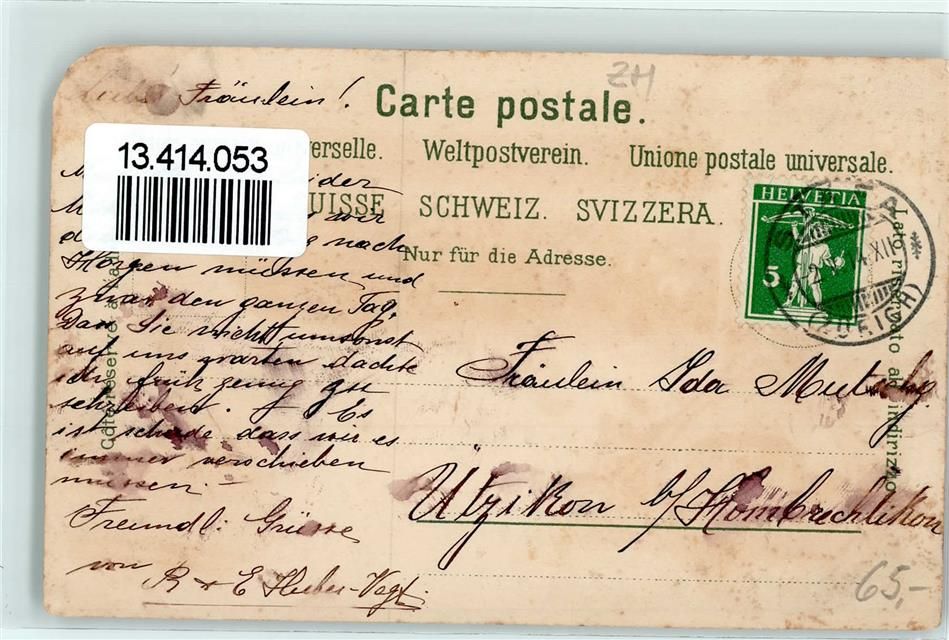 Fräulein!
ZH
Carte postale.
13.414.053
verselle. Weltpostverein. Unione postale universale.
UISSE SCHWEIZ. SVIZZERA.
Nur für die Adresse.
HELVETIA
5
XII
(ZÜRICH)
Lato riservato all indirizzo
Côté réservé à
wir
nach
müssen und
zwar den ganzen Tag.
Das Sie nicht umsonst
auf uns warten dachte
ich früh genug zu
schreiben. Es
ist schade dass wir es
immer verschieben
müssen. –
Freundl. Grüsse
von R & E Huber-Vogt.
Fräulein Ida
Ützikon b/Hombrechtikon
65,-